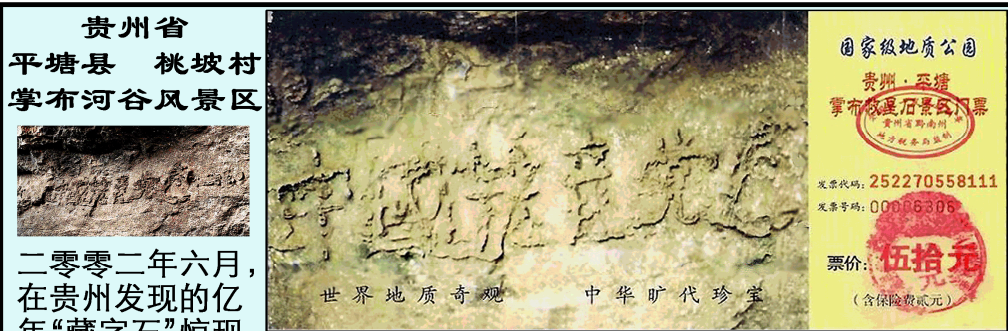 贵州省
平塘县 桃坡村
掌布河谷风景区
二零零二年六月，
在贵州发现的亿
年“藏字石”惊现
世界地质奇观 中华旷代珍宝
国家级地质公园
贵州·平塘
掌布救星石景区门票
贵州省黔南州
地方税务局监制
发票代码：252270558111
发票号码：00006306
票价：伍拾元
（含保险费贰元）